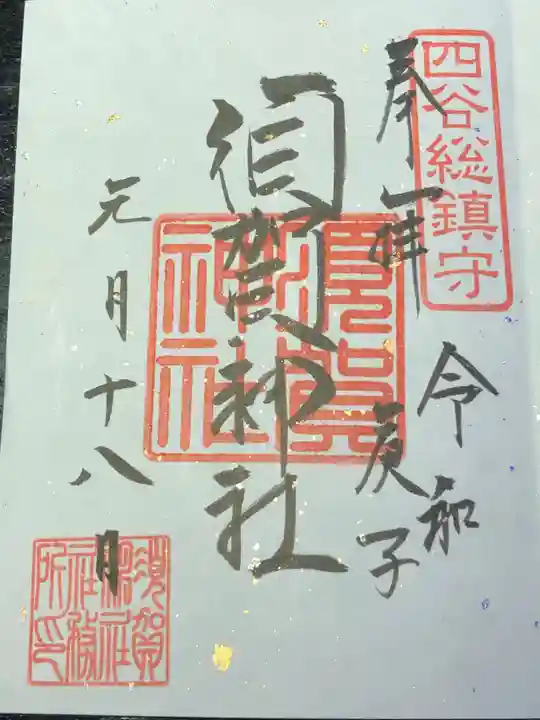 四谷総鎮守
奉拝
令和
庚子
須賀神社
須賀神社
元月十八月
須賀
神社
社務
所印